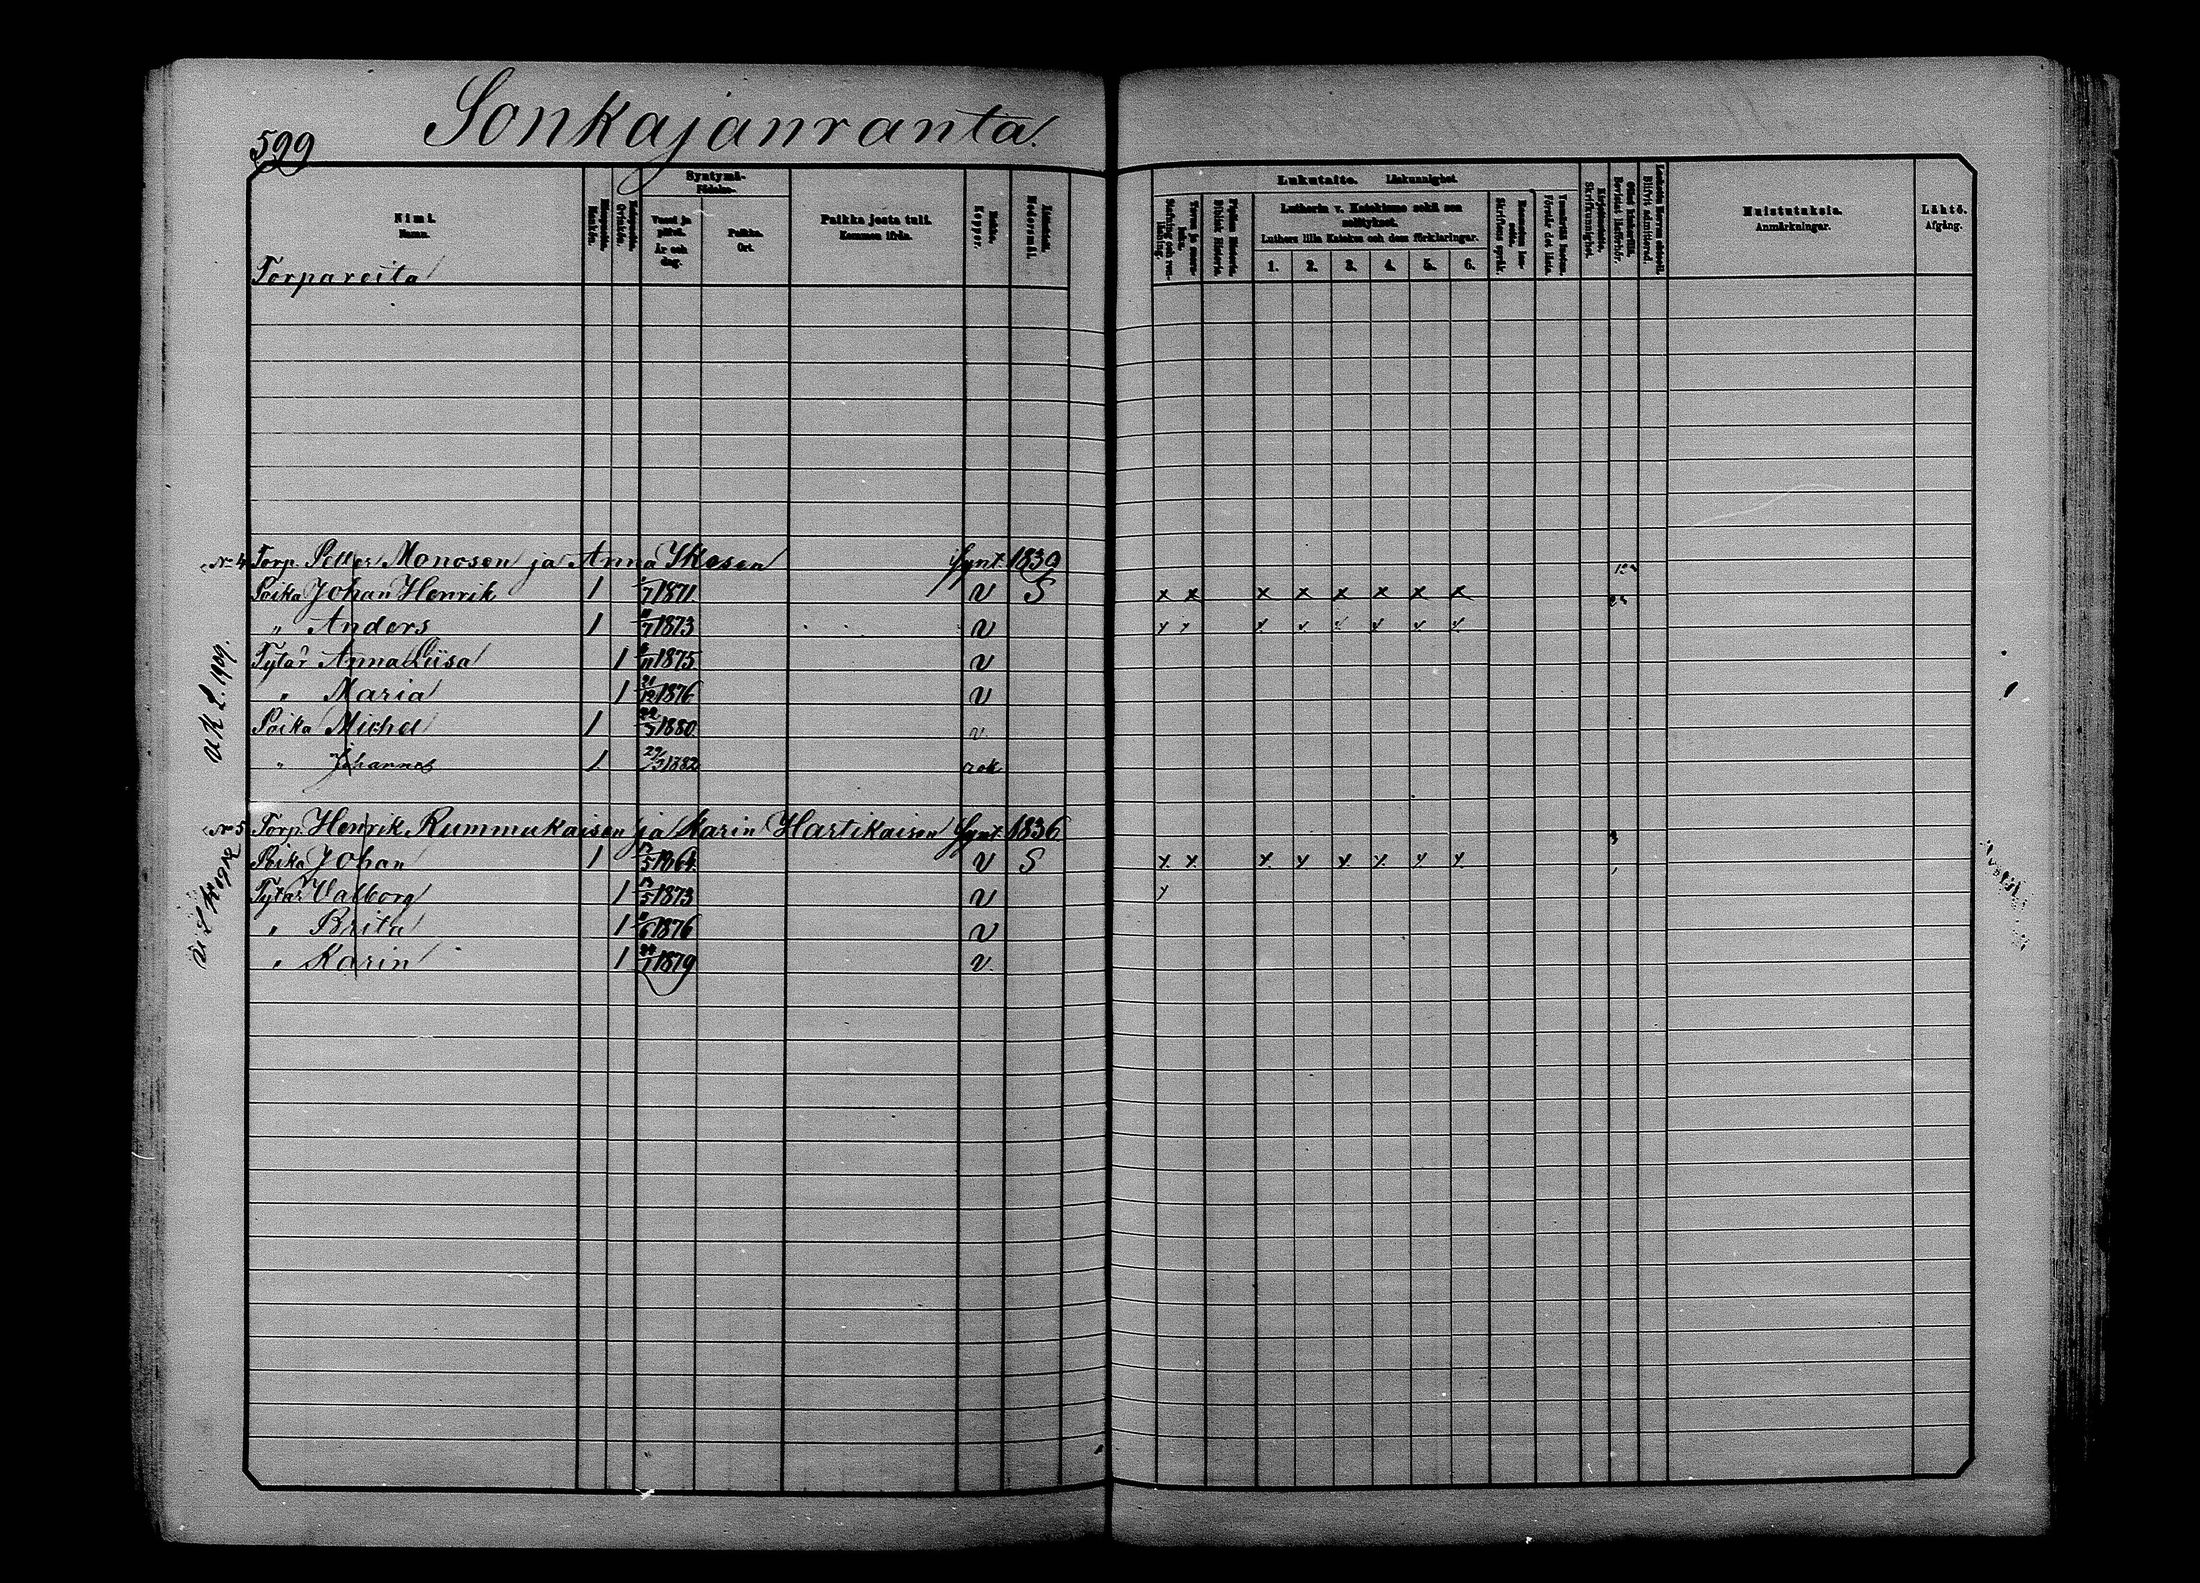 599
Sonkajanranta.
Nimi.
Namn.
Torpareita
Miespuolia.
Mankön.
Vaimopuolia.
Qvinkön.
Syntymä-
Födelse-
Vuosi ja päivä.
År och dag.
Paikka.
Ort.
Paikka josta tuli.
Kommen ifrån.
Rokko.
Koppor.
Lukutaito. Läskunnighet.
Lutherin v. Katekismo sekä sen selitykset.
Luthers lilla Katekes och dess förklaringar.
1. 2. 3. 4. 5. 6.
Förstår det lästa.
Kirjoitustaito.
Skrifkunnighet.
Muistutuksia.
Anmärkningar.
Lähtö.
Afgång.
N 4 Torp. Petter Monosen ja Anna Ikosen synt. 1839
Poika Johan Henrik 1 /7 1871 v S x x x x x x x x
" Anders 1 /7 1873 v
Tytär Anna Liisa 1 /11 1875 v
" Maria 1 21/12 1876 v
Poika Michel 1 22/5 1880 v
" Johannes 1 1882 rok
U K L. 1909.
N 5 Torp. Henrik Rummukaisen ja Karin Hartikaisen synt. 1836
Poika Johan 1 /5 1864. v S x x x x x x x x
Tytär Valborg 1 /5 1873 v
" Brita 1 /6 1876 v
" Karin 1 /1 1879 v